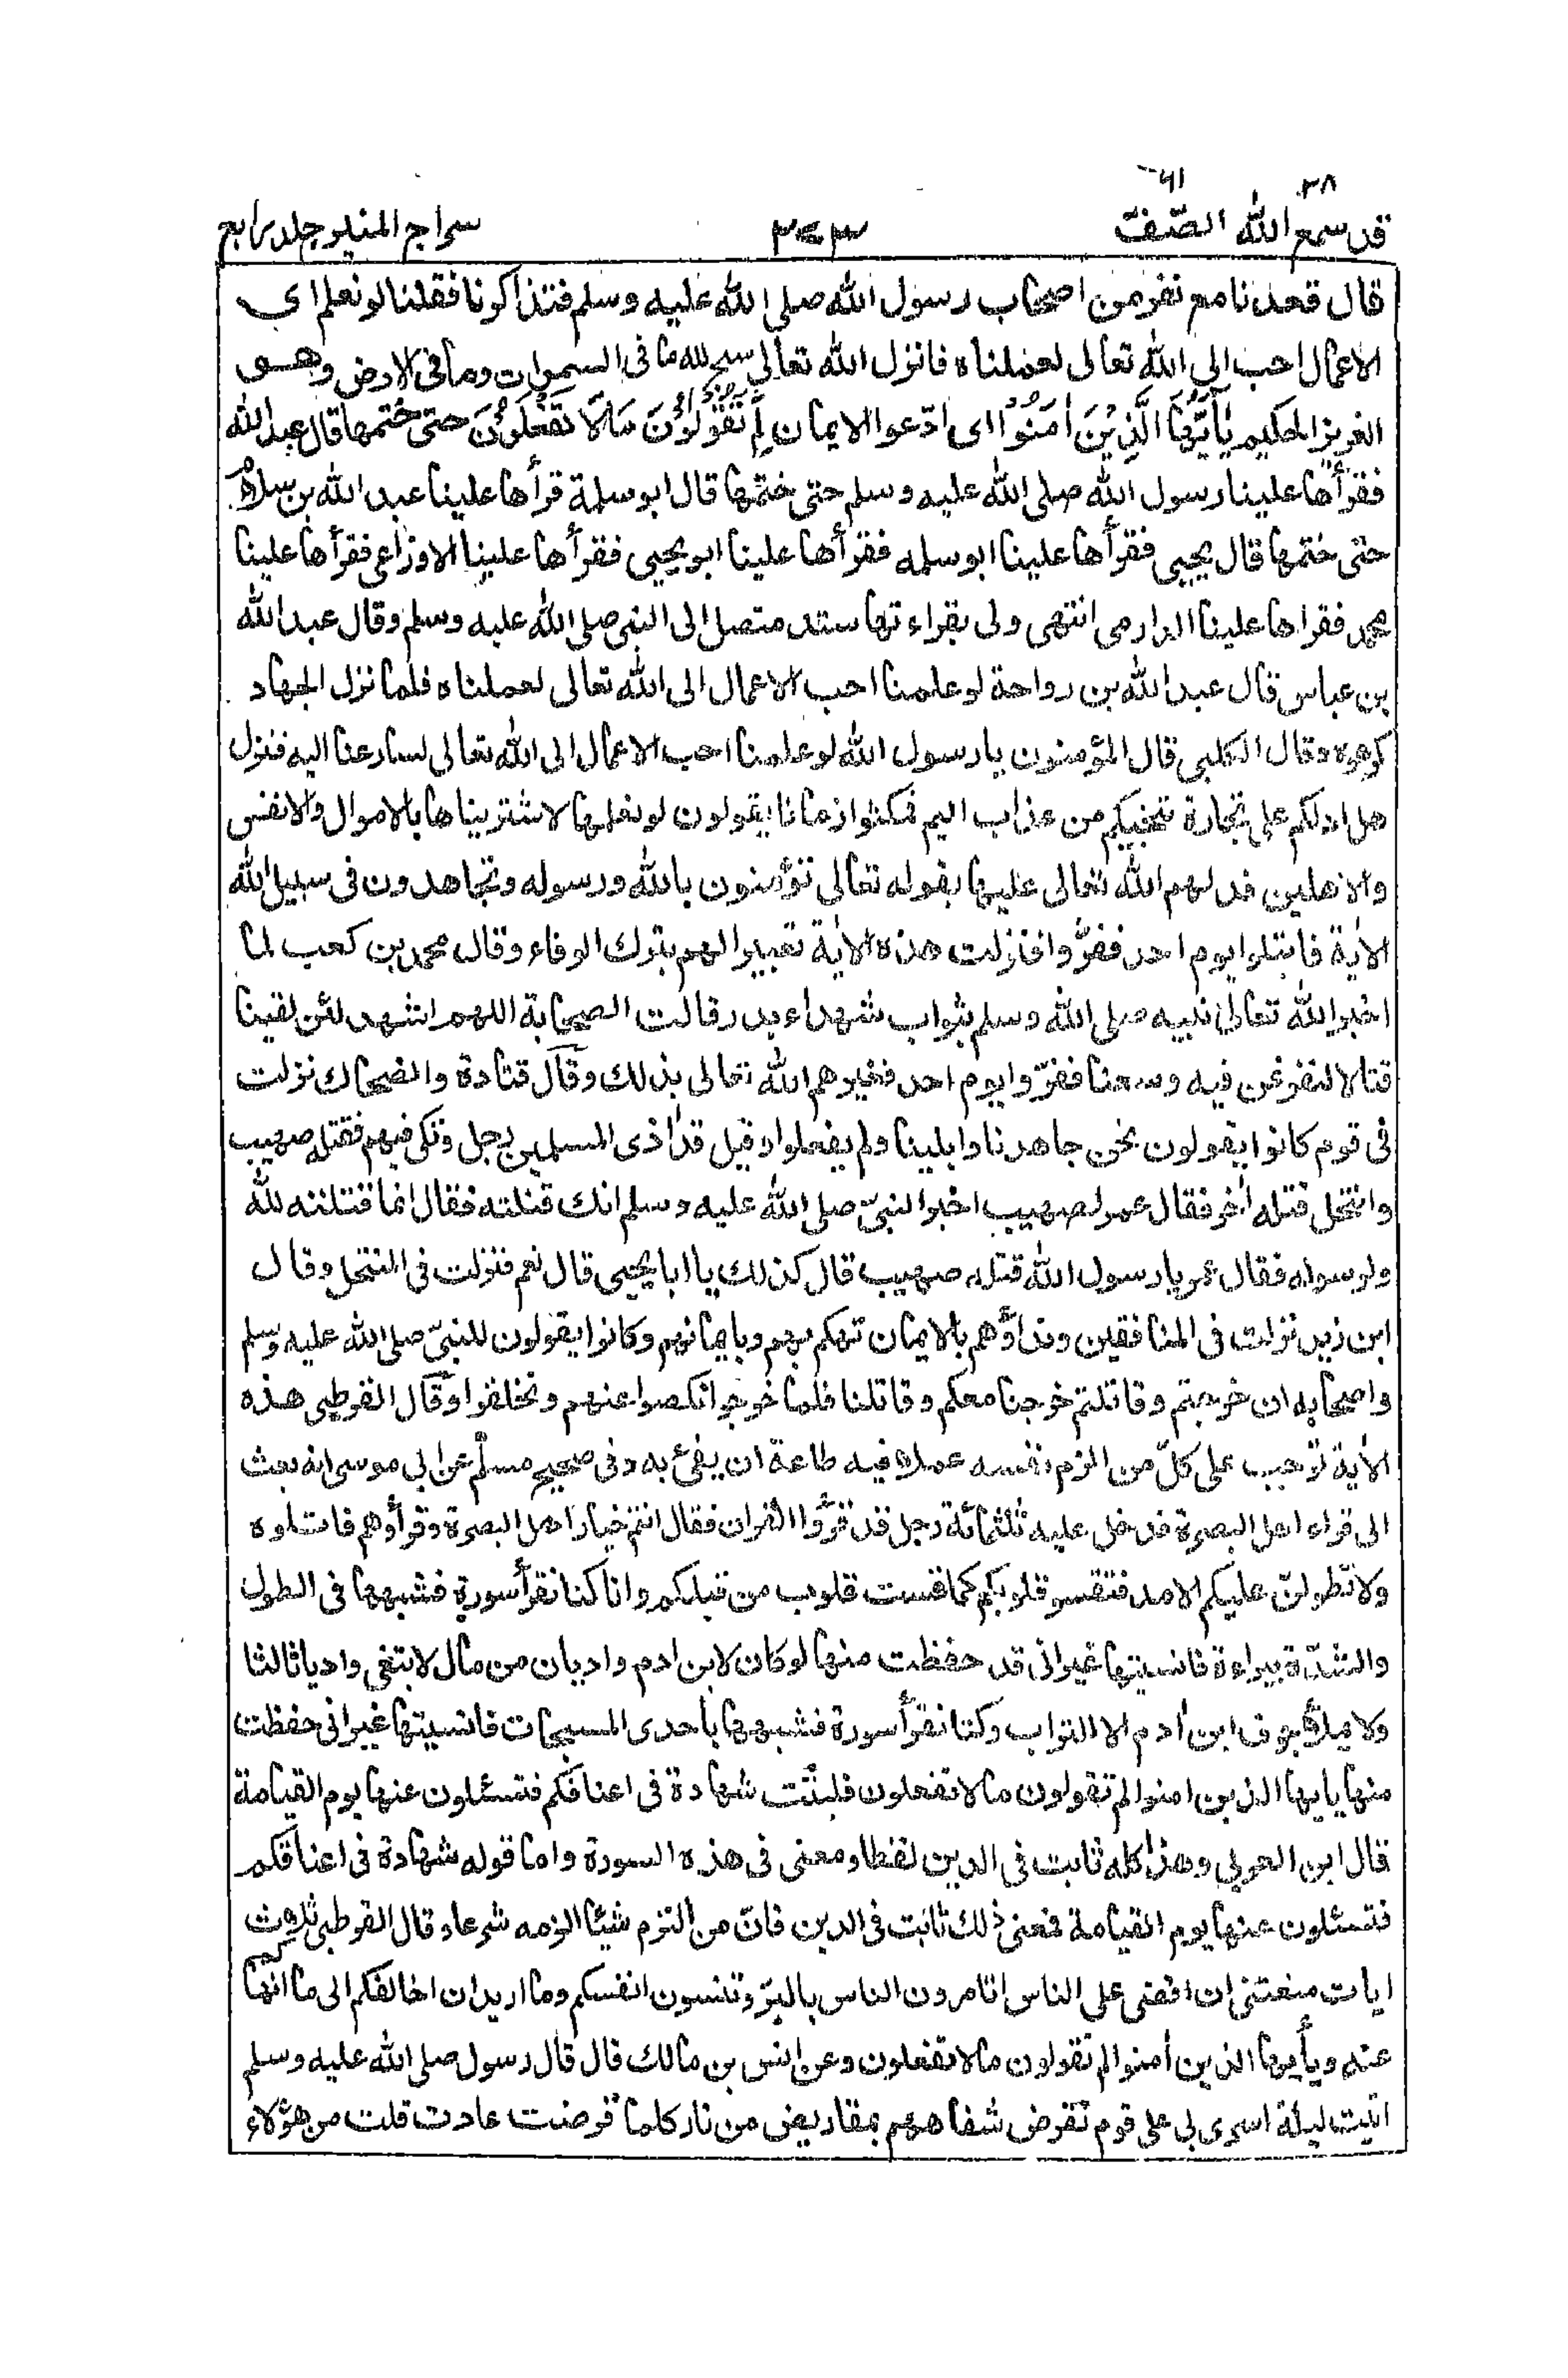 ٢٨ ٦١
قد سمع الله الصّفّ ٢٤٣ سراج المنير جلد رابع
قال قعدنا مع نفر من اصحاب رسول الله صلى الله عليه وسلم فتذاكرنا فقلنا لو نعلم اى
الاعمال احب الى الله تعالى لعملناه فانزل الله تعالى سبح لله ما فى السموات وما فى الارض وهو
العزيز الحكيم يٰٓاَيُّهَا الَّذِيْنَ اٰمَنُوْا اى ادّعوا الايمان لِمَ تَقُوْلُوْنَ مَالَا تَفْعَلُوْنَ حتى ختمها قال عبد الله
فقرأها علينا رسول الله صلى الله عليه وسلم حتى ختمها قال ابو سلمة قرأها علينا عبد الله بن سلام
حتى ختمها قال يحيى فقرأها علينا ابو سلمه فقرأها علينا ابو يحيى فقرأها علينا الاوزاعى فقرأها علينا
محمد فقراها علينا الدارمى انتهى ولى بقراءتها سند متصل الى النبى صلى الله عليه وسلم وقال عبد الله
بن عباس قال عبد الله بن رواحة لو علمنا احب الاعمال الى الله تعالى لعملناه فلما نزل الجهاد
كرهوه وقال الكلبى قال المؤمنون يا رسول الله لو علمنا احب الاعمال الى الله تعالى لسارعنا اليه فنزل
هل ادلكم على تجارة تنجيكم من عذاب اليم فمكثوا زمانا يقولون لو نعلمها لاشتريناها بالاموال والانفس
والاهلين فدلهم الله تعالى عليها بقوله تعالى تؤمنون بالله ورسوله وتجاهدون فى سبيل الله
الاٰية فابتلوا يوم احد ففرّوا فنزلت هذه الاٰية تعييرا لهم بترك الوفاء وقال محمد بن كعب لما
اخبر الله تعالى نبيه صلى الله وسلم بثواب شهداء بدر قالت الصحابة اللهم اشهد لئن لقينا
قتالا لنفرغن فيه وسعنا ففرّوا يوم احد فعيرهم الله تعالى بذلك وقال قتادة والضحاك نزلت
فى قوم كانوا يقولون نحن جاهدنا وابلينا ولم يفعلوا وقيل قد اٰذى المسلمين رجل ونكى فيهم فقتله صهيب
وانتحل قتله اٰخر فقال عمر لصهيب اخبر النبىّ صلى الله عليه وسلم انك قتلته فقال انما قتلته لله
ولرسوله فقال عمر يا رسول الله قتله صهيب قال كذلك يا ابا يحيى قال نعم فنزلت فى المنتحل وقال
ابن زيد نزلت فى المنافقين ونداؤهم بالايمان تهكم بهم وبايمانهم وكانوا يقولون للنبىّ صلى الله عليه وسلم
واصحابه ان خرجتم وقاتلتم خرجنا معكم وقاتلنا فلما خرجوا نكصوا عنهم وتخلفوا وقال القرطبى هذه
الاٰية توجب على كلّ من الزم نفسه عملا فيه طاعة ان يفىٔ به وفى صحيح مسلم عن ابى موسى انه بعث
الى قراء اهل البصرة فدخل عليه ثلثمائة رجل قد قرؤا القراٰن فقال انتم خيار اهل البصرة وقرأؤهم فاتلوه
ولا تطولنّ عليكم الامد فتقسو قلوبكم كما قست قلوب من قبلكم وانا كنا نقرأ سورة فشبهها فى الطول
والشدّة ببراءة فانسيتها غير انى قد حفظت منها لو كان لابن ادم واديان من مال لابتغى واديا ثالثا
ولا يملأ جوف ابن اٰدم الا التراب وكنا نقرأ سورة فشبهها بأحدى المسبحات فانسيتها غير انى حفظت
منها يايها الذين امنوا لم تقولون مالا تفعلون فلبثت شهادة فى اعناقكم فتسئلون عنها يوم القيامة
قال ابن العربى وهذا كله ثابت فى الدين لفظا ومعنى فى هذه السورة واما قوله شهادة فى اعناقكم
فتسئلون عنها يوم القيامة فمعنى ذلك ثابت فى الدين فانّ من التزم شيئا الزمه شرعا وقال القرطبى ثلاث
ايات منعتنى ان اقضى على الناس اتامرون الناس بالبرّ وتنسون انفسكم وما اريد ان اخالفكم الى ما انهاكم
عنه ويأيها الذين اٰمنوا لم تقولون مالا تفعلون وعن انس بن مالك قال قال رسول صلى الله عليه وسلم
اتيت ليلة اسرى بى على قوم تقرض شفاههم بمقاريض من نار كلما قرضت عادت قلت من هؤلاء